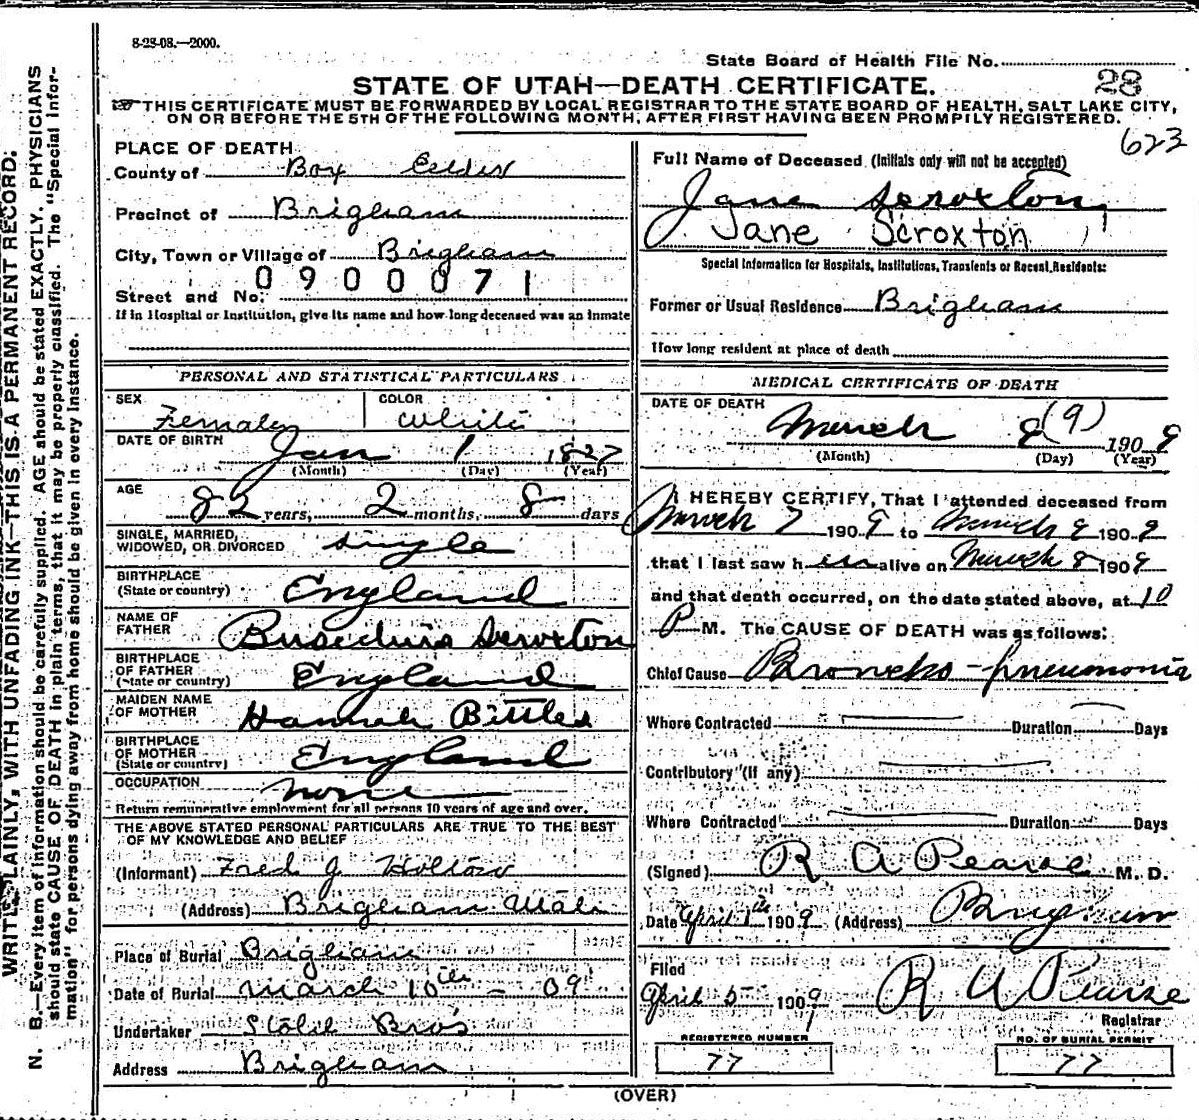 8-28-08.—2000.
State Board of Health File No.
STATE OF UTAH—DEATH CERTIFICATE.
28
THIS CERTIFICATE MUST BE FORWARDED BY LOCAL REGISTRAR TO THE STATE BOARD OF HEALTH, SALT LAKE CITY,
ON OR BEFORE THE 5TH OF THE FOLLOWING MONTH, AFTER FIRST HAVING BEEN PROMPILY REGISTERED.
623
PLACE OF DEATH
County of Box Elder
Precinct of Brigham
City, Town or Village of Brigham
0900071
Street and No.
If in Hospital or Institution, give its name and how long deceased was an inmate
PERSONAL AND STATISTICAL PARTICULARS
SEX Female COLOR White
DATE OF BIRTH Jan 1 1827
(Month) (Day) (Year)
AGE 82 years, 2 months, 8 days
SINGLE, MARRIED,
WIDOWED, OR DIVORCED single
BIRTHPLACE
(State or country) England
NAME OF
FATHER Scroxton
BIRTHPLACE
OF FATHER
(State or country) England
MAIDEN NAME
OF MOTHER Hannah Bittles
BIRTHPLACE
OF MOTHER
(State or country) England
OCCUPATION None
Return remunerative employment for all persons 10 years of age and over.
THE ABOVE STATED PERSONAL PARTICULARS ARE TRUE TO THE BEST
OF MY KNOWLEDGE AND BELIEF
(Informant) Fred J Holton
(Address) Brigham Utah
Place of Burial Brigham
Date of Burial March 10th - 09
Undertaker Bros
Address Brigham
Full Name of Deceased (Initials only will not be accepted)
Jane Scroxton
Jane Scroxton
Special Information for Hospitals, Institutions, Transients or Recent Residents:
Former or Usual Residence Brigham
How long resident at place of death
MEDICAL CERTIFICATE OF DEATH
DATE OF DEATH
March 8 (9) 1909
(Month) (Day) (Year)
I HEREBY CERTIFY, That I attended deceased from
March 7 1909 to March 9 1909
that I last saw her alive on March 8 1909
and that death occurred, on the date stated above, at 10
P M. The CAUSE OF DEATH was as follows:
Chief Cause Broncho-pneumonia
Where Contracted Duration Days
Contributory (if any)
Where Contracted Duration Days
(Signed) R A Pearse M. D.
Date April 1st 1909 (Address) Brigham
Filed
April 5 1909 R A Pearse
Registrar
REGISTERED NUMBER
77
NO. OF BURIAL PERMIT
77
(OVER)
WRITE PLAINLY, WITH UNFADING INK—THIS IS A PERMANENT RECORD.
N. B.—Every item of information should be carefully supplied. AGE should be stated EXACTLY. PHYSICIANS
should state CAUSE OF DEATH in plain terms, that it may be properly classified. The "Special Infor-
mation" for persons dying away from home should be given in every instance.